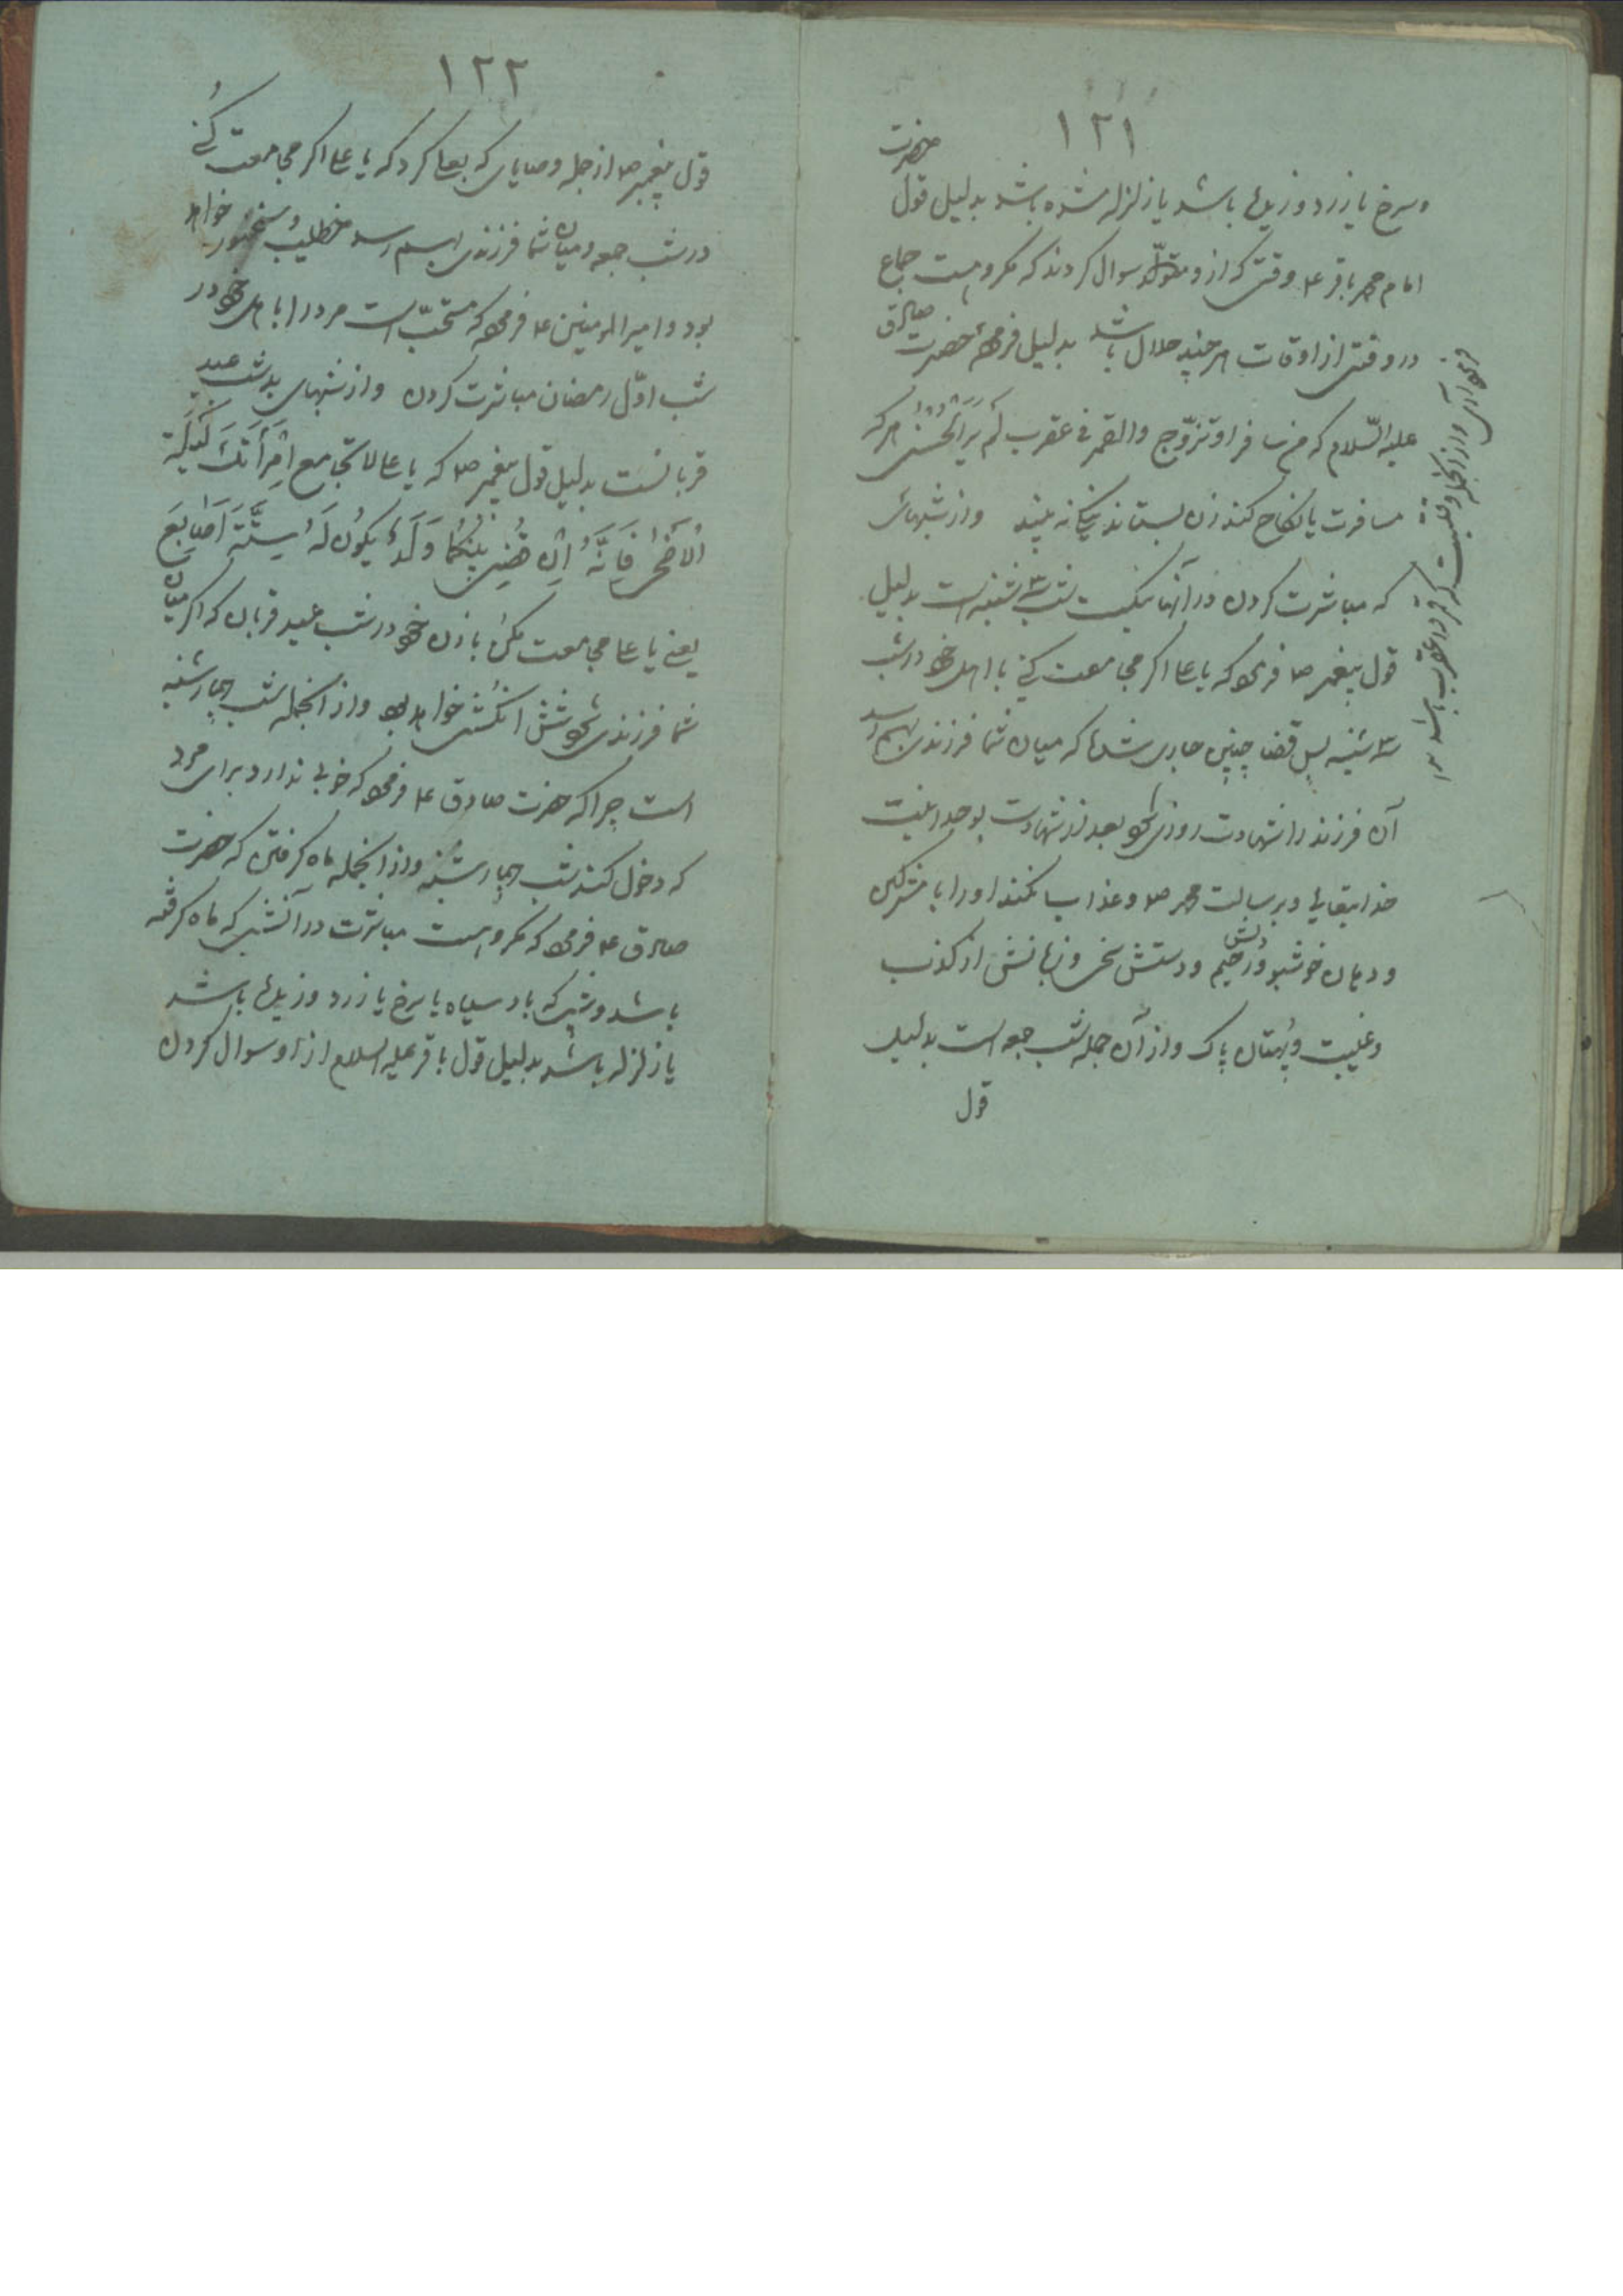 ۱۲۱
وسرخ یا زرد وزیده باشد یا زلزله شده باشد بدلیل قول حضرت
امام محمد باقر ع وقتی که از و سوال کردند که مکروهست جماع
در وقتی از اوقات هر چند حلال باشد بدلیل فرموده حضرت صادق
علیه السّلام که من سافر او تزوّج والقمر فی عقرب لم یر الحسنی هر که
مسافرت یا نکاح کند زن بستاند نیکی نه بیند واز شبهائی
که مباشرت کردن در آنها نیکست شب سه شنبه است بدلیل
قول پیغمبر ص فرمود که یا علی اگر مجامعت کنی با اهل خود در شب
سه شنبه پس قضا چنین جاری شده که میان شما فرزندی بهم رسد
آن فرزند را شهادت روزی شود بعد از شهادت بوحدانیت
خدایتعالی و برسالت محمد ص وعذاب نکند او را با مشرکین
ودهان خوشبو ودلش رحیم ودستش سخی وزبانش از کذب
وغیبت وبهتان پاک واز آن جمله شب جمعه است بدلیل
قول
واز آنجمله وقتیست که قمر در عقرب باشد
۱۲۲
قول پیغمبر ص از جمله وصایای که بعلی کرد که یا علی اگر مجامعت کُنے
در شب جمعه ومیان شما فرزندی بهم رسد خطیب وسخنور خواهد
بود وامیر المومنین ع فرمود که مستحبّ است مرد را با اهل خود در
شب اوّل رمضان مباشرت کردن واز شبهای بد شب عید
قربانست بدلیل قول پیغمبر ص که یا علی لا تجامع اِمْرَأَتَکَ لَیْلَةِ
الاَضْحٰی فَاِنَّهُ اِن قُضِیَ بَیْنَکُمٰا وَلَدٌ یکُونُ لَهُ سِتَّةَ اَصٰابِعَ
یعنے یا علی مجامعت مکن با زن خود در شب عید قربان که اگر میان
شما فرزندی شود شش انگشتی خواهد بود واز آنجمله شب چهارشنبه
است چرا که حضرت صادق ع فرمود که خوبی ندارد برای مرد
که دخول کند شب چهارشنبه واز آنجمله ماه گرفتن که حضرت
صادق ع فرمود که مکروهست مباشرت در آنشبی که ماه گرفته
باشد وشبی که باد سیاه یا سرخ یا زرد وزیده باشد
یا زلزله باشد بدلیل قول باقر علیه السلام از او سوال کردن